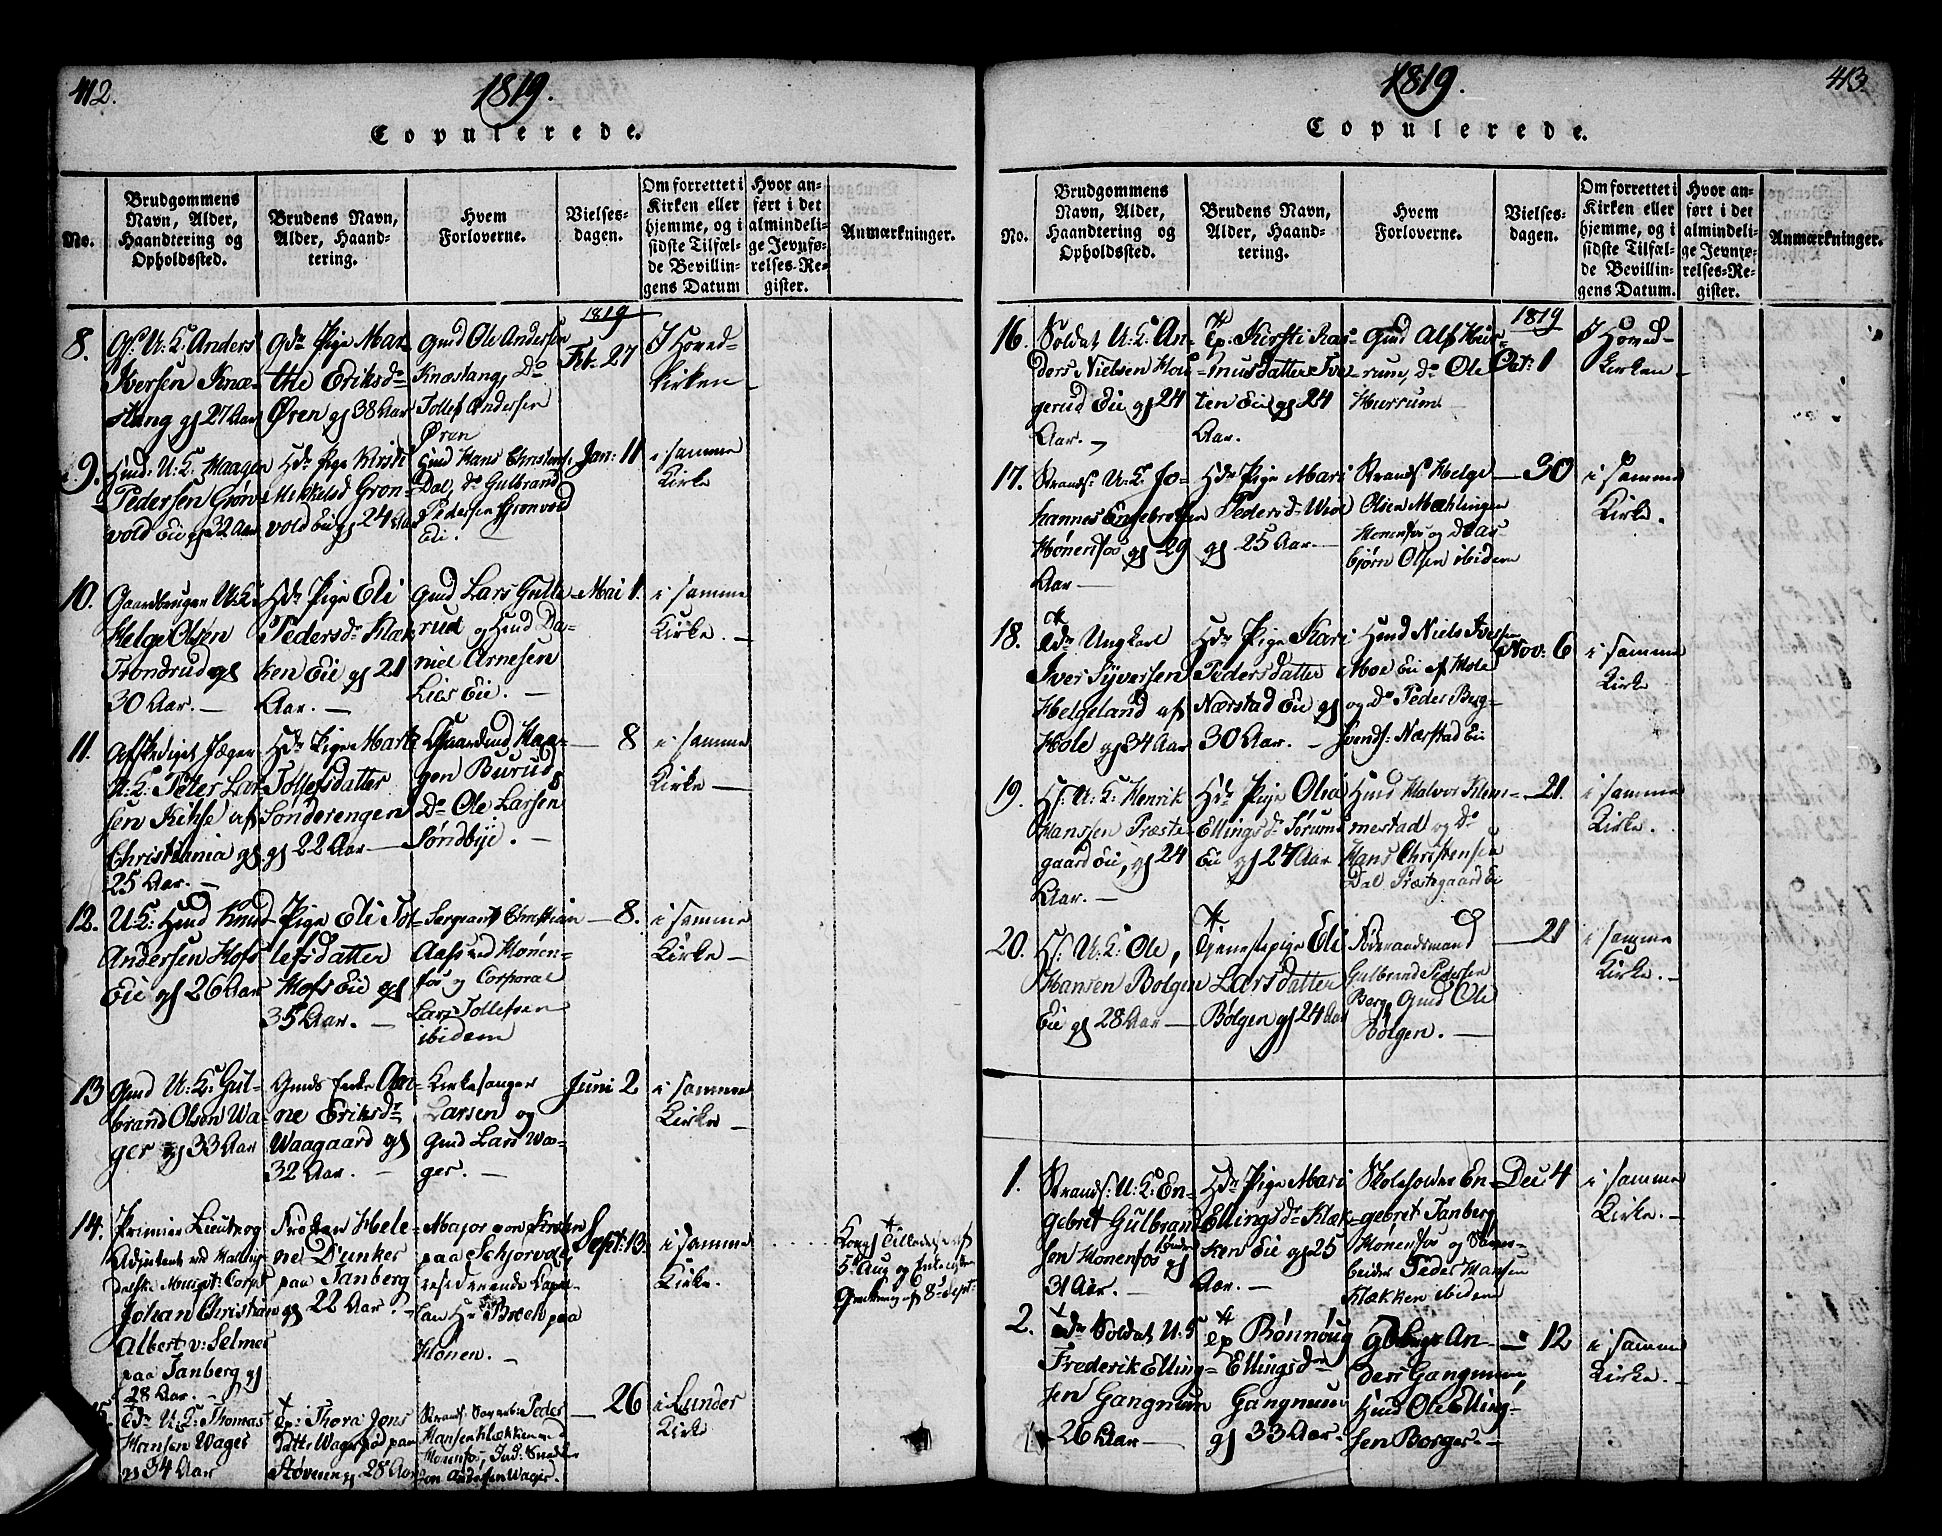 412.
1819.
Copulerede.
No.
Brudgommens
Navn, Alder,
Haandtering og
Opholdssted.
Brudens Navn,
Alder, Haand-
tering.
Hvem
Forloverne.
Vielses-
dagen.
Om forrettet i
Kirken eller
hjemme, og i
sidste Tilfæl-
de Bevillin-
gens Datum
Hvor an-
ført i det
almindeli-
ge Jevnfø-
relses-Re-
gister.
Anmærkninger.
8.
Gs: U: K: Anders
Iversen Knæ-
stang gl 27 Aar
Gdr Pige Mar-
the Eriksdr
Øren gl 38 Aar
Gmd Ole Andersen
Knæstang, Do
Tollef Andersen
Øren
1819
Feb. 27
I Hoved-
kirken
9.
Hmd: U: K: Haagen
Pedersen Grøn-
vold Eie gl 32 Aar
Hdr Pige Kirsti
Mikkelsd Grøn-
vold Eie gl 24 Aar
Hmd Hans Christens:
Dal, do Gulbrand
Pedersen Grønvold
Eie.
Jan: 11
i samme
Kirke
10.
Gaardbruger U: K:
Helge Olsen
Trondrud gl
30 Aar.
Hdr Pige Eli
Pedersdr Klæk-
ken Eie gl 21
Aar.
Gmd Lars Gulle-
rud og Hmd Da-
niel Arnesen
Lies Eie.
Mai 1.
i samme
Kirke.
11.
Afskediget Jæger
U: K: Peter Lar-
sen Kihle af
Christiania gl
25 Aar.
Hdr Pige Marte
Tollefsdatter
Sønderengen
gl 22 Aar
Gaardmd Haa-
gen Burud
Do Ole Larsen
Søndbye.
8
i samme
Kirke
12.
U: K: Hmd Knud
Andersen Hofs
Eie gl 26 Aar
Pige Eli Tol-
lefsdatter
Hofs Eie gl
35 Aar.
Sergeant Christian
Aafs ved Hønen-
fos og Corporal
Lars Tollefsen
ibidem
8.
i samme
Kirke
13
Gmd U: K: Gul-
brand Olsen Wa-
ger gl 33 Aar
Gmds Enke An-
ne Eriksdr
Waagaard gl
32 Aar.
Kirkesanger
Larsen og
Gmd Lars Wa-
ger.
Juni 2
i samme
Kirke
14.
Primier Lieut: og
Adjutant ved
Johan Christian
Albert v: Selmer
paa Tanberg gl
28 Aar.
Frøken Hele-
ne Dunker
paa Tanberg
gl 22 Aar.
Major von Krogh
paa Schjørvold,
residerende Capel-
lan Hr Bræk paa
Hønen.
Sept: 13.
i samme
Kirke.
Kongl Tilladelse af
5 Aug og
af 8 Sept:
15.
Edr U: K: Thomas
Hansen Wager
gl 34 Aar
Tp: Thora Jons
Datter Wager
Støveren gl 28 Aar
Strands: Peder
Hansen Klækken ved
Hønenfos, Ind:
Andersen Wager.
26
i Lunder
Kirke
1819.
413.
Copulerede.
No.
Brudgommens
Navn, Alder,
Haandtering og
Opholdssted.
Brudens Navn,
Alder, Haand-
tering.
Hvem
Forloverne.
Vielses-
dagen.
Om forrettet i
Kirken eller
hjemme, og i
sidste Tilfæl-
de Bevillin-
gens Datum.
Hvor an-
ført i det
almindeli-
ge Jevnfø-
relses-Re-
gister.
Anmærkninger.
16.
Soldat U: K: An-
ders Nielsen Hou-
gerud Eie gl 24
Aar.
Tp: Kirsti Ras-
musdatter Tve-
ten Eie gl 24
Aar.
Gmd Alf Hur-
rum, do Ole
Hurrum
1819
Oct: 1
I Hoved-
Kirken
17.
Strands: U: K: Jo-
hannes Engebretsen
Hønenfos gl 29
Aar
Hdr Pige Mari
Pedersd: Whol
gl 25 Aar.
Strands: Helge
Olsen Mæhlingen
Hønenfos og do As-
bjørn Olsen ibidem
30
i samme
Kirke.
18.
Edr Ungkarl
Iver Syversen
Helgeland af
Hole gl 34 Aar
Hdr Pige Kari
Pedersdatter
Nærstad Eie gl
30 Aar.
Hmd Niels Iversen
Moe Eie af Hole
og do Peder Berg-
Svends: Nærstad Eie
Nov: 6
i samme
Kirke
19.
Hs: U: K: Henrik
Hanssen Præste-
gaard Eie, gl 24
Aar.
Hdr Pige Olia
Ellingsdr Sørum
Eie gl 27 Aar
Hmd Halvor Klem-
mestad og do
Hans Christensen
Dal Præstegaard Ei
21.
i samme
Kirke.
20.
Hs: U: K: Ole,
Hansen Bølgen
Eie gl 28 Aar
Tjenestepige Eli
Larsdatter
Bølgen gl 24 Aar
Føderaadsmand
Gulbrand Pedersen
Berg, Gmd Ole
Bølgen.
21
i samme
Kirke.
1.
Strands: U: K: En-
gebret Gulbrand-
sen Hønenfos gl
31 Aar.
Hdr Pige Mari
Ellingsdr Klæk-
ken Eie gl 25
Aar.
Skoleholder En-
gebret Tanberg
Hønenfos og
Peder Hansen
Klækken ibidem
Dec 4
i samme
Kirke.
2.
Edr Soldat U: K
Frederik Elling-
sen Gangnum
26 Aar
Tp Rønnoug
Ellingsdr
Gangnum
gl 33 Aar.
An-
ders Gangnum,
Hmd Ole Elling-
sen Borger.
12
i samme
Kirke.